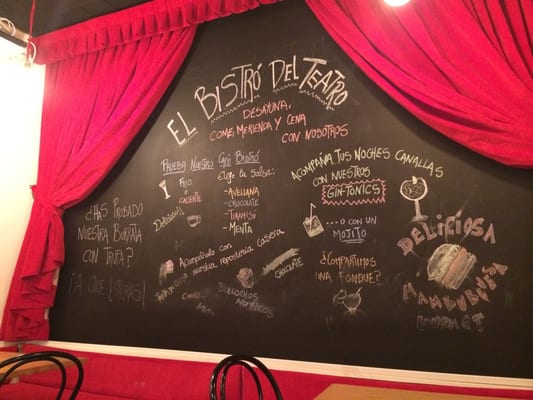 EL BISTRÓ DEL TEATRO
DESAYUNA,
COME, MERIENDA Y CENA
CON NOSOTROS
PRUEBA NUESTRO CAFÉ BISTRÓ
FRIO
O
CALIENTE
Delicioso!!
Elige tu salsa:
- AVELLANA
- CHOCOLATE
- TIRAMISÚ
- MENTA
Acompáñalo con
nuestra repostería casera
CHOCOLATE
BIZCOCHOS
ACOMPAÑA TUS NOCHES CANALLAS
CON NUESTROS
GIN-TONICS
...O CON UN
MOJITO
¿COMPARTIMOS
UNA FONDUE?
¿HAS PROBADO
NUESTRA BURRATA
CON TRUFA?
¡A QUE ESPERAS!
DELICIOSA
HAMBURGUESA
GOURMET